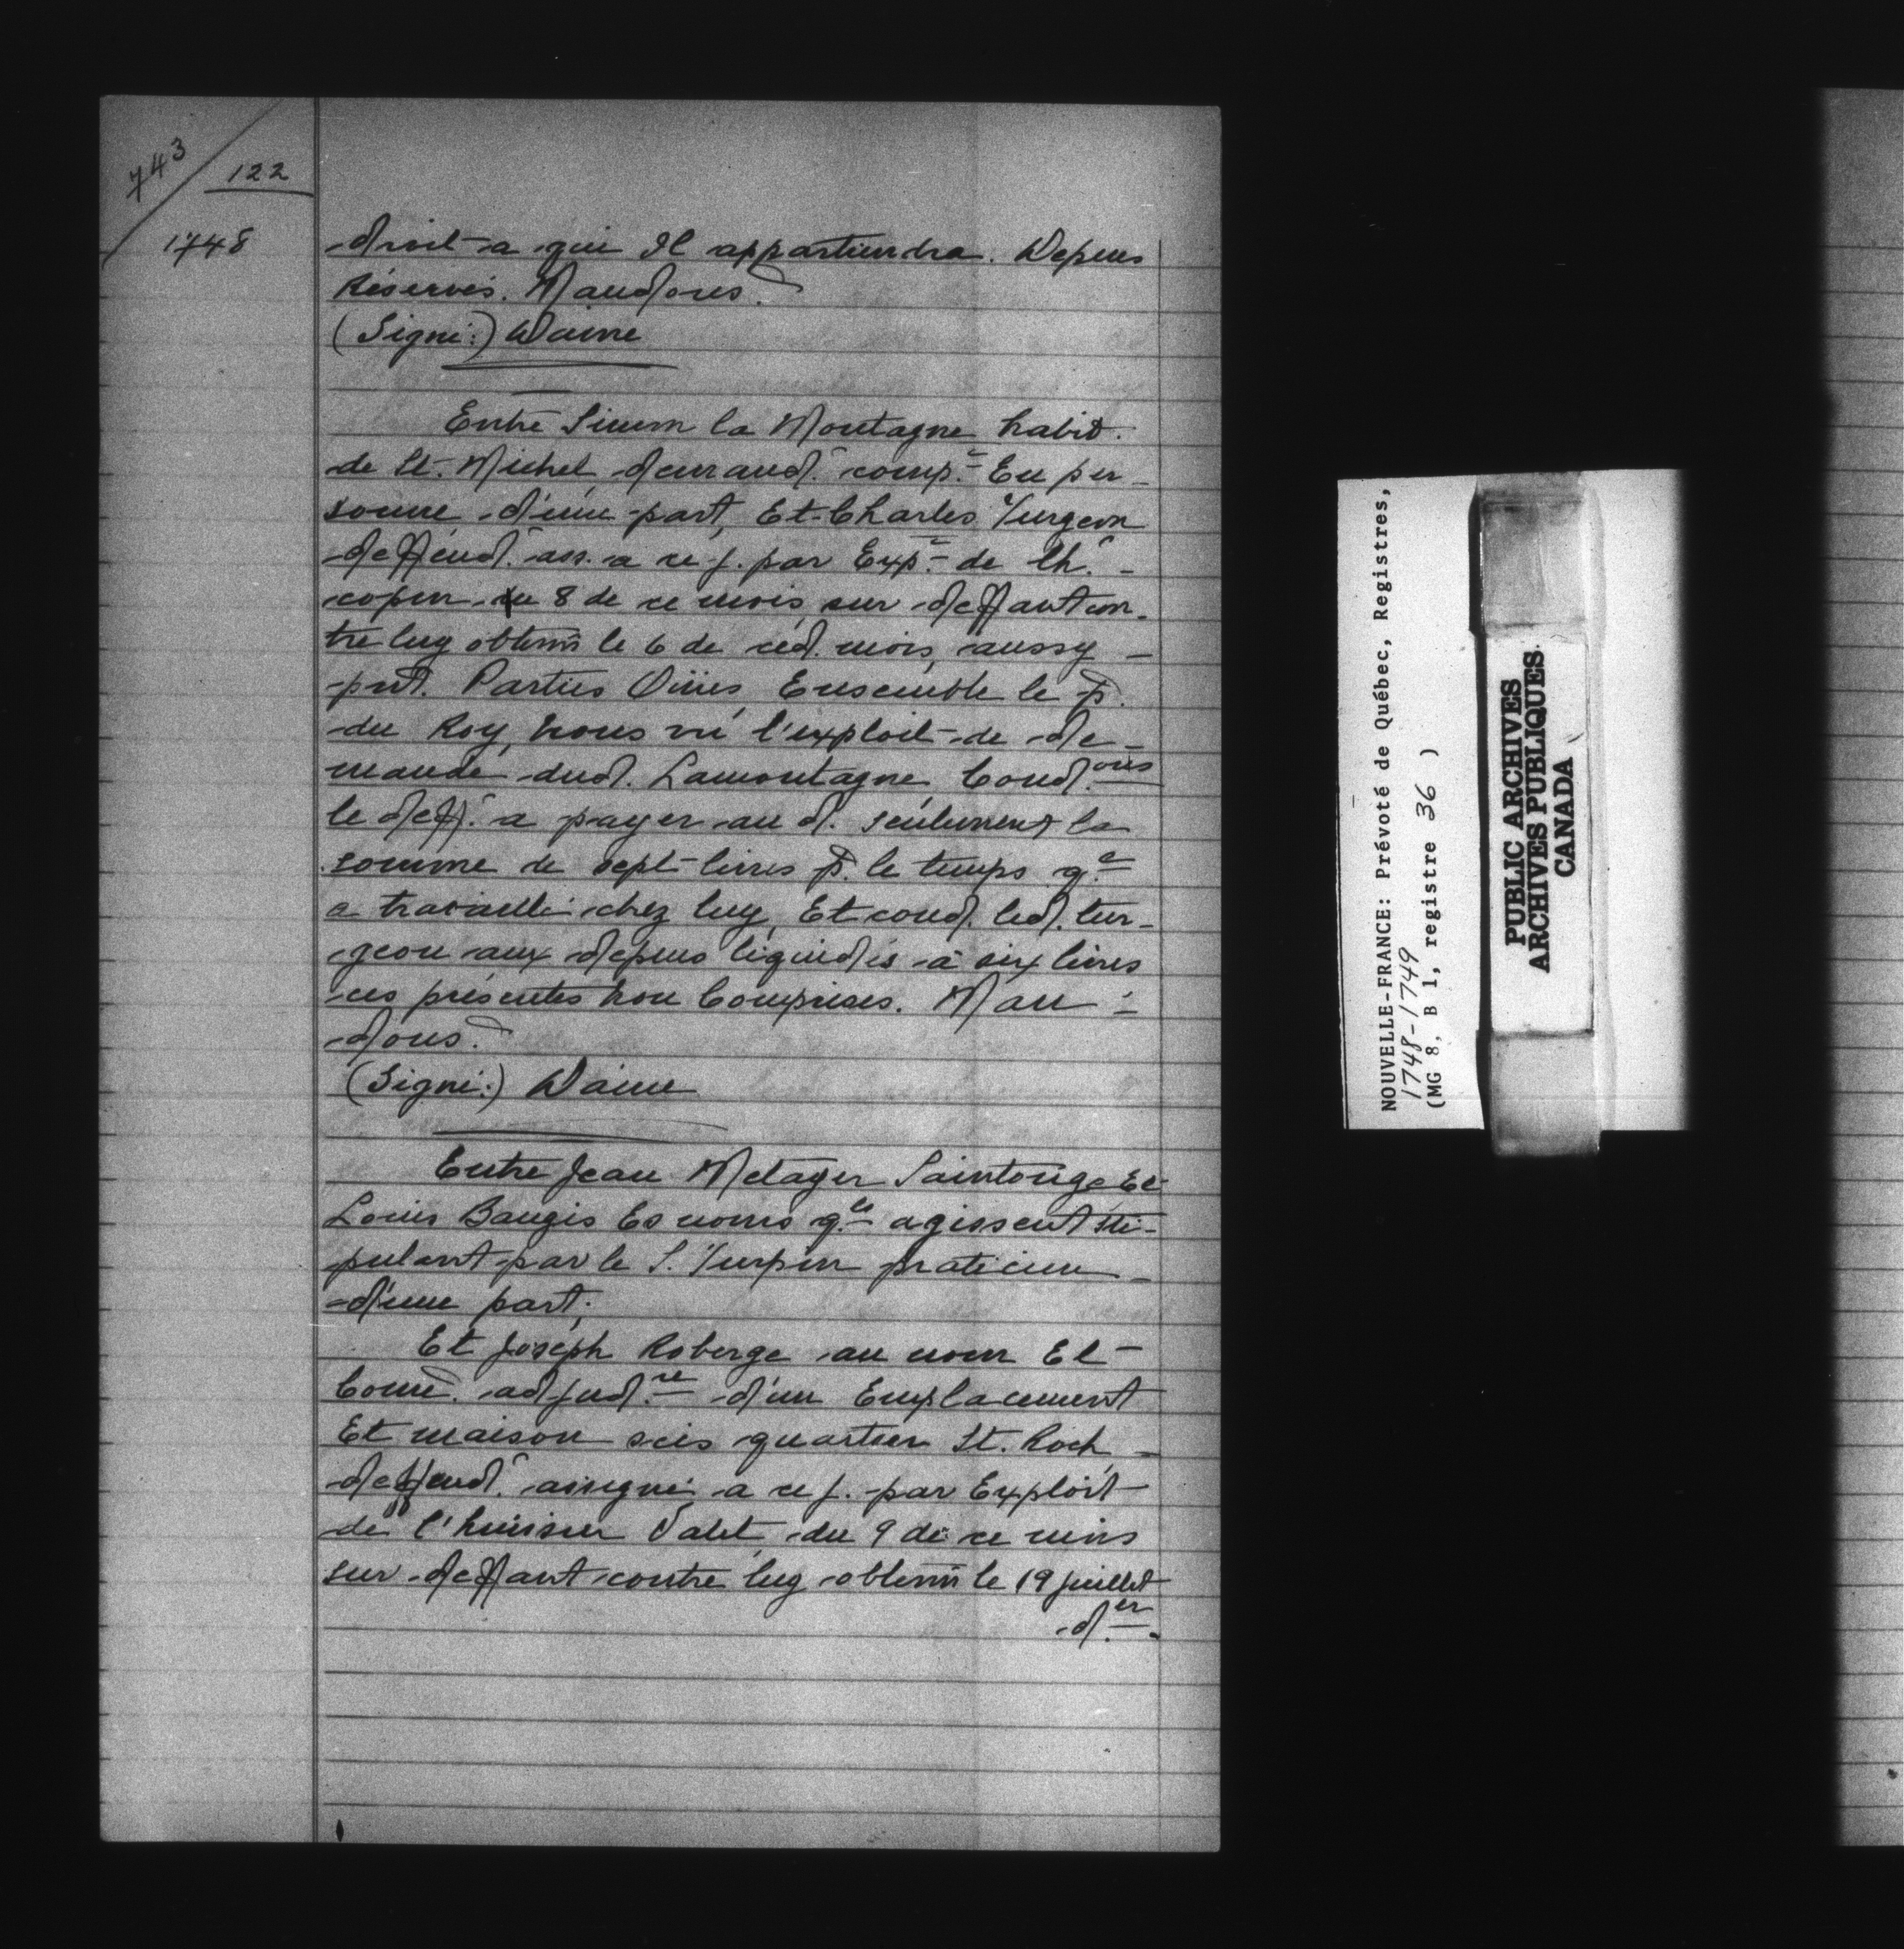 743
122
1748
droit a qui Il appartiendra. Depens
Réservés. Mandons.
(Signé:) Daine
Entre Simon la Montagne habit.
de St. Michel, demand. comp.t En per-
sonne d'une part, Et Charles Turgeon
deffend. ass. a ce j. par Exp.t de lh.
copin du 8 de ce mois, sur deffaut con-
tre luy obtenu le 6 de ced. mois, aussy
pnt. Parties Oüies Ensemble le p.
du Roy, nous vû l'exploit de de-
mande dud. Lamontagne Cond.ons
le deff. a payer au d. seulement la
somme de sept livres p. le temps q.e
a travaillé chez luy, Et cond. led. tur-
geon aux depens liquidés à six livres
ces présentes non Comprises. Man-
dons.
(Signé:) Daine
Entre Jean Metayer Saintonge Et
Louis Baugis Es noms q.ls agissent sti-
pulant par le S. Turpin praticien
d'une part;
Et Joseph Roberge au nom Et
Comme adjud.re d'un Emplacement
Et maison scis quartier St. Roch
deffend. assigné a ce j. par Exploit
de l'huissier Valet du 9 de ce mois
sur deffaut contre luy obtenu le 19 juillet
d.er
NOUVELLE-FRANCE: Prévoté de Québec, Registres,
1748-1749
(MG 8, B 1, registre 36 )
PUBLIC ARCHIVES
ARCHIVES PUBLIQUES
CANADA